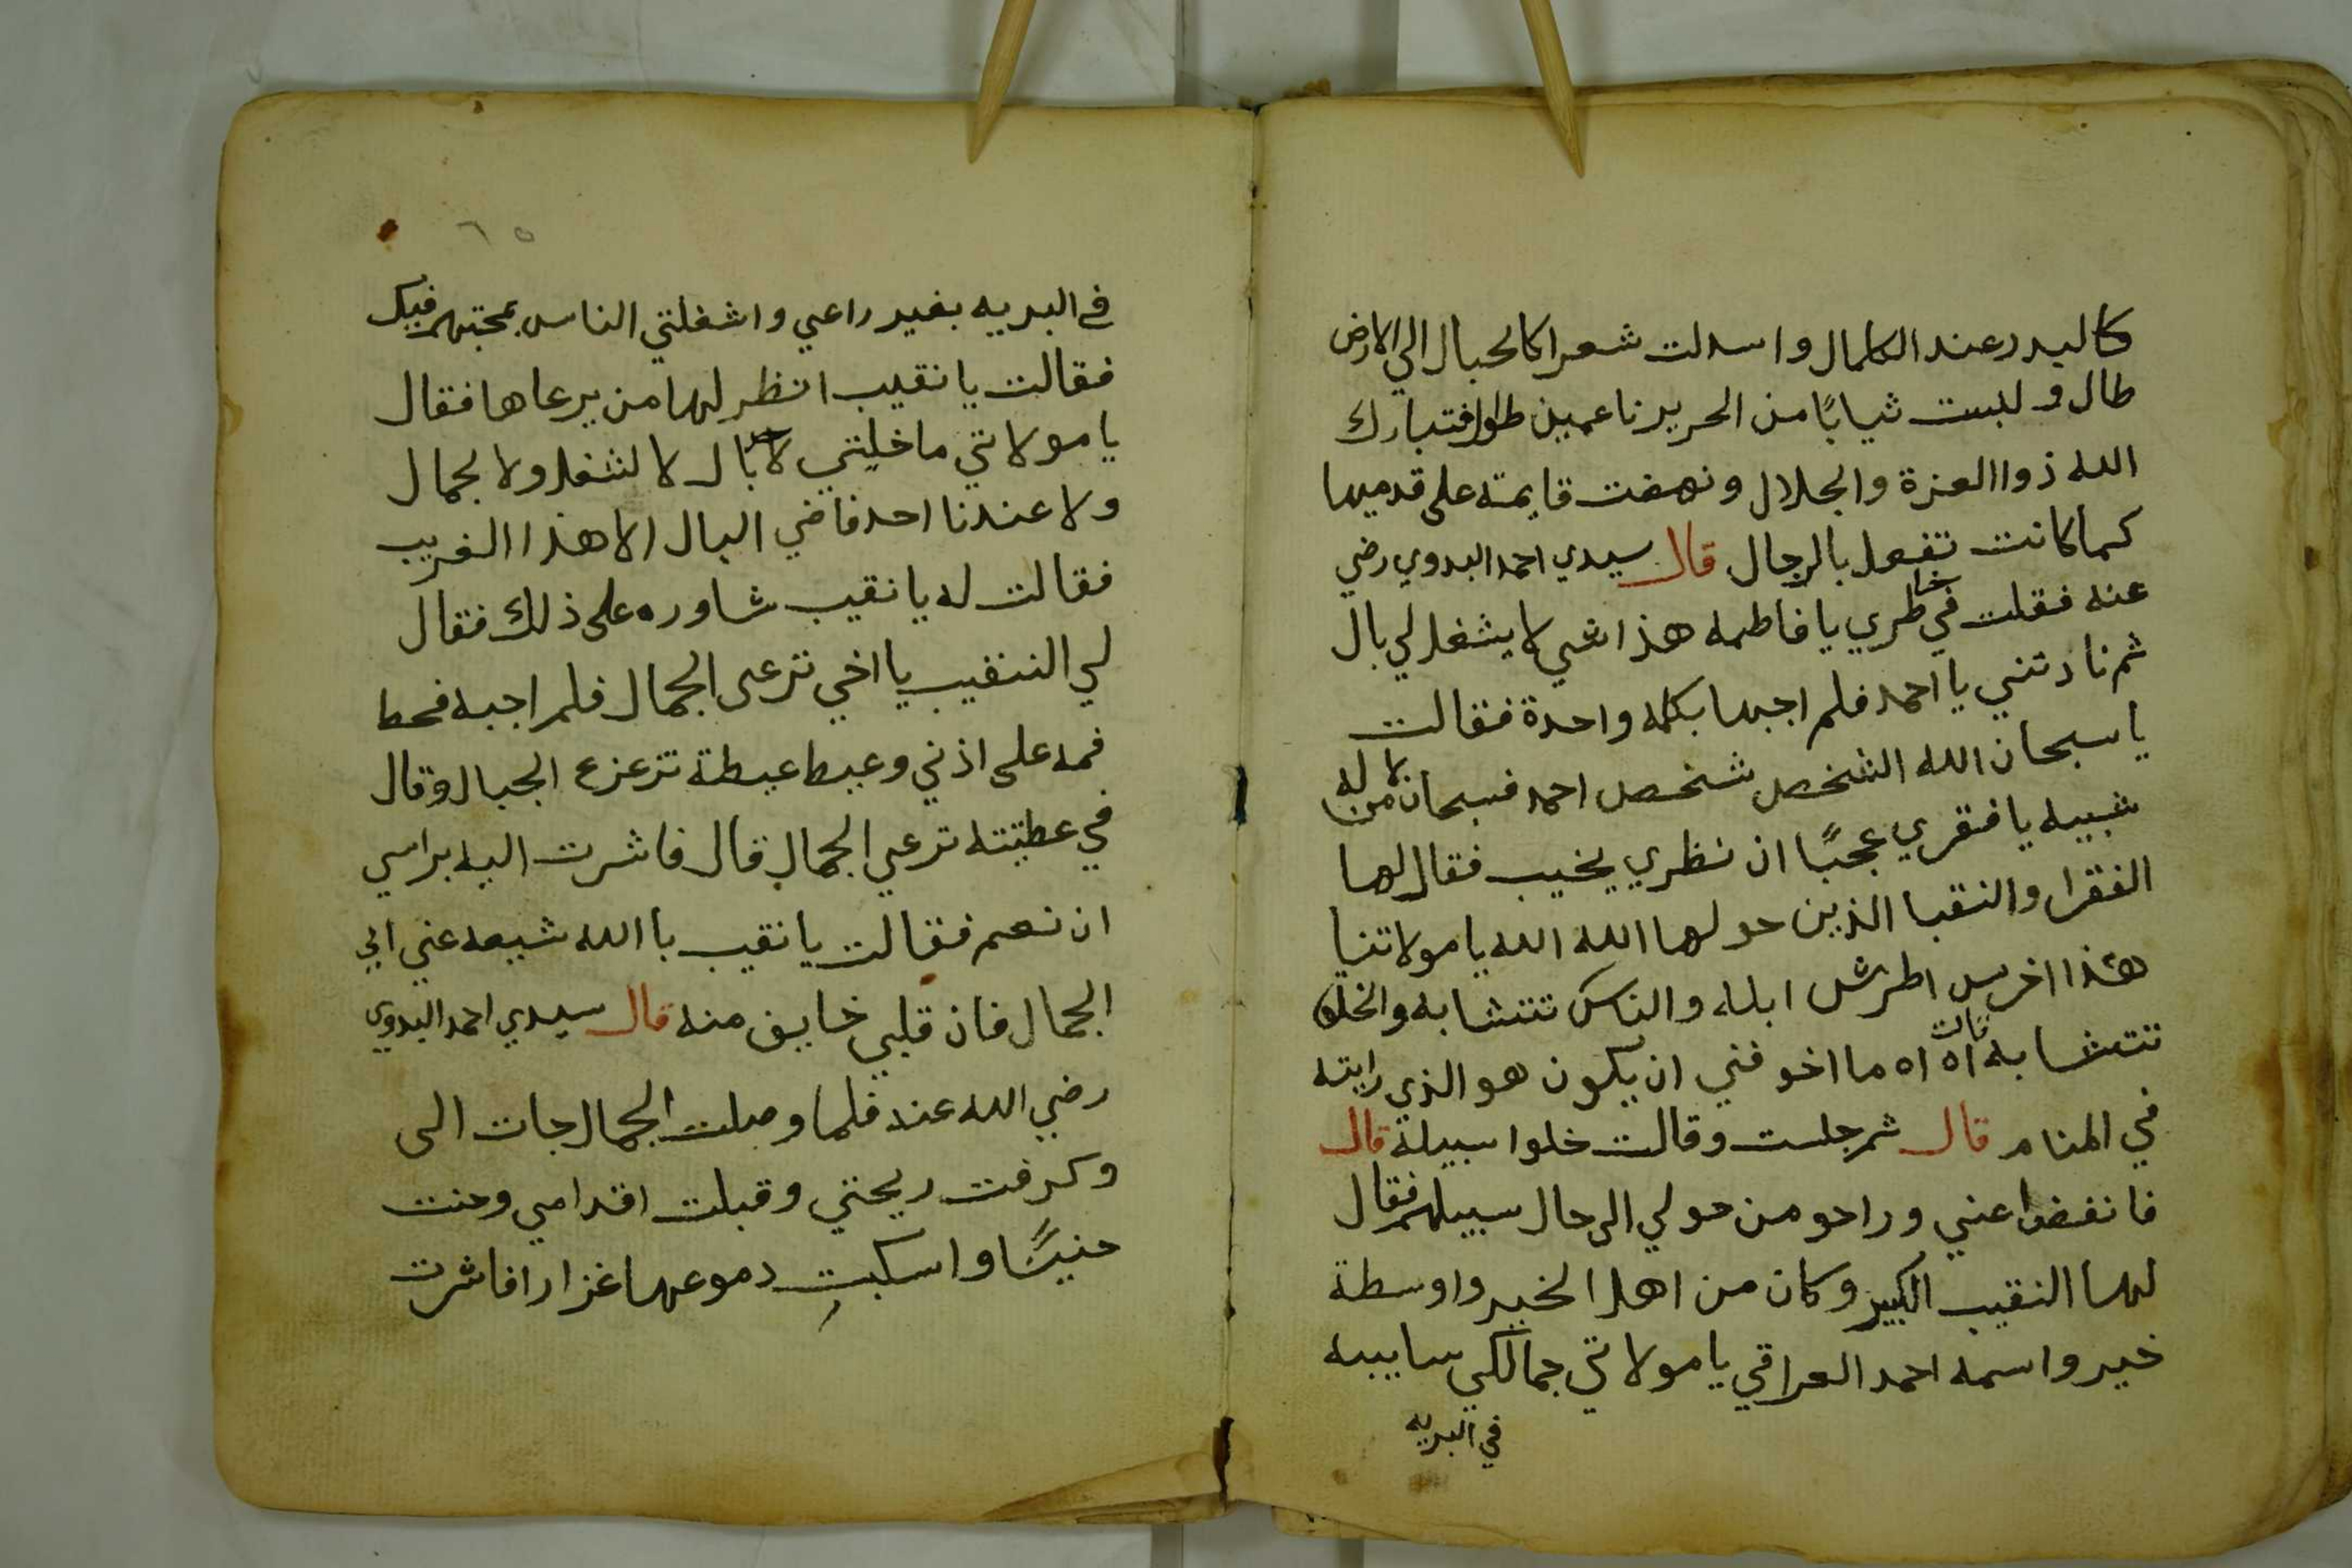 كالبدر عند الكمال واسدلت شعرا كالحبال الي الارض
طال ولبست ثيابًا من الحرير ناعمين طوال فتبارك
الله ذوا العزة والجلال ونهضت قايمته على قدميها
كما كانت تفعل بالرجال قال سيدي احمد البدوي رضي
عنه فقلت في خاطري يا فاطمه هذا شي لا يشغل لي بال
ثم نادتني يا احمد فلم اجبها بكلمه واحدة فقالت
يا سبحان الله الشخص شخص احمد فسبحان من لا له
شبيه يا فقري عجبًا ان نظري يخيب فقال لها
الفقرا والنقبا الذين حولها الله الله يا مولاتنا
هذا اخرس اطرش ابله والناس تتشابه والخلق
تتشابه قالت اه اه ما اخوفني ان يكون هو الذي رايته
في المنام قال ثم جلست وقالت خلوا سبيله قال
فانفضوا عني وراحو من حولي الى حال سبيلهم فقال
لها النقيب الكبير وكان من اهل الخير واوسطة
خير واسمه احمد العراقي يا مولاتي جمالكي سايبه
في البريه
٦٥
في البريه بغير راعي واشغلتي الناس بمحبتهم فيك
فقالت يا نقيب انظر لها من يرعاها فقال
يا مولاتي ما خليتي لاحد بال لا لشغل ولا لجمال
ولا عندنا احد فاضي البال الا هذا الغريب
فقالت له يا نقيب شاوره على ذلك فقال
لي النقيب يا اخي ترعى الجمال فلم اجبه فحط
فمه على اذني وعيط عيطة تزعزع الجبال وقال
في عطيته ترعي الجمال قال فاشرت اليه براسي
ان نعم فقالت يا نقيب با الله شيعه عني الي
الجمال فان قلبي خايف منه قال سيدي احمد البدوي
رضي الله عنه فلما وصلت الجمال جات الى
وكرفت ريحتي وقبلت اقدامي وحنت
حنينًا واسكبت دموعها غزارا فاشرت